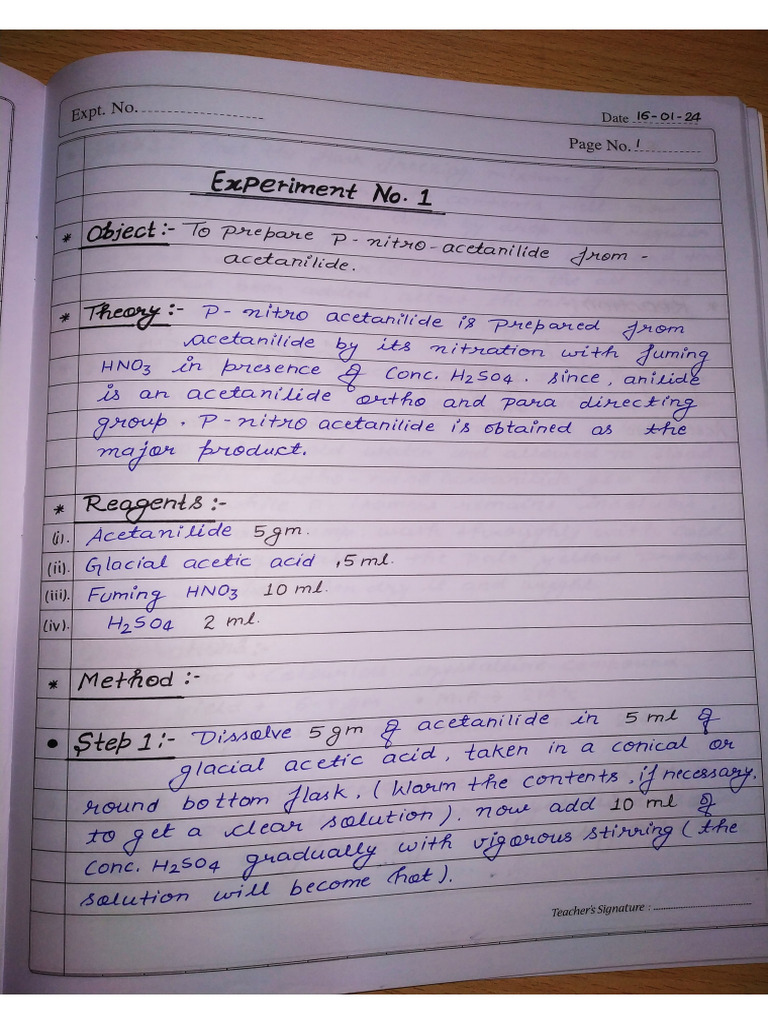 Expt. No.
Date 16-01-24
Page No. 1
Experiment No. 1
* Object:- To prepare P-nitro-acetanilide from -
acetanilide.
* Theory:- P-nitro acetanilide is prepared from
acetanilide by its nitration with fuming
HNO3 in presence of conc. H2SO4. since, anilide
is an acetanilide ortho and para directing
group. P-nitro acetanilide is obtained as the
major product.
* Reagents:-
(i). Acetanilide 5gm.
(ii). Glacial acetic acid ,5 ml.
(iii). Fuming HNO3 10 ml.
(iv). H2SO4 2 ml.
* Method:-
• Step 1:- Dissolve 5gm of acetanilide in 5 ml of
glacial acetic acid, taken in a conical or
round bottom flask. (Warm the contents, if necessary.
to get a clear solution). now add 10 ml of
conc. H2SO4 gradually with vigorous stirring (the
solution will become hot).
Teacher's Signature :